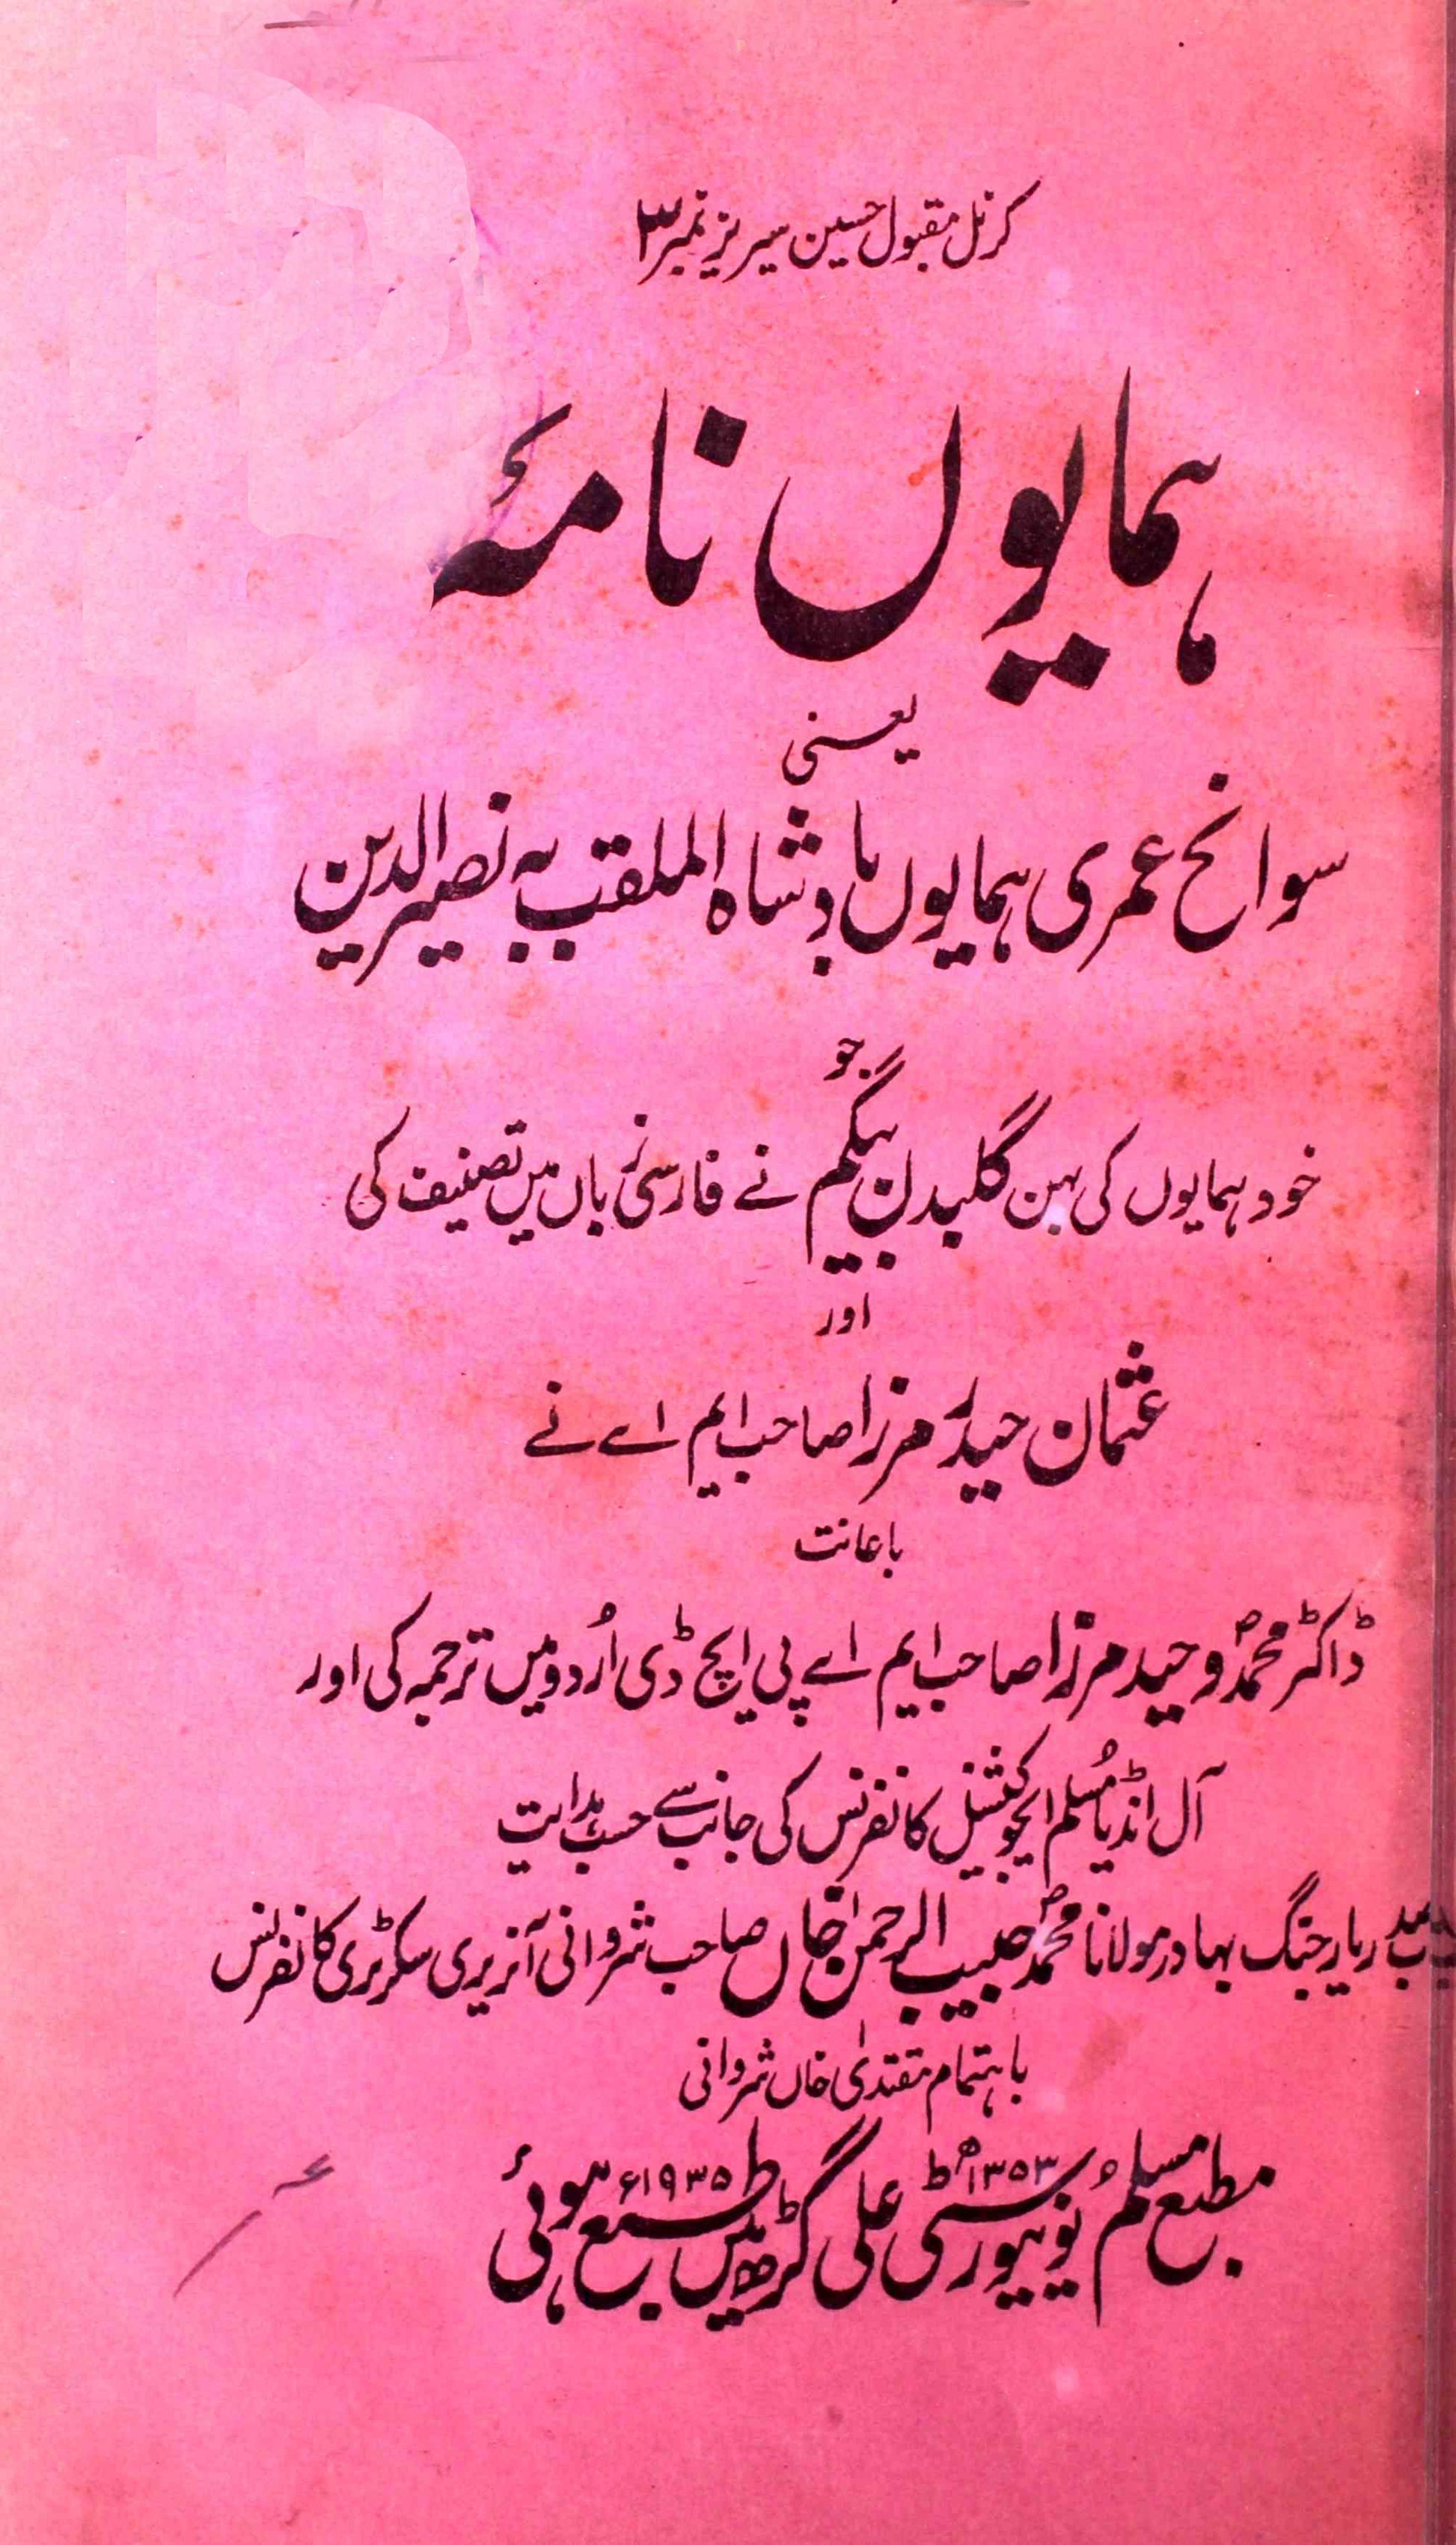 کرنل مقبول حسین سیریز نمبر ۳
ہمایوں نامۂ
یعنی
سوانح عمری ہمایوں بادشاہ الملقب بہ نصیر الدین
جو
خود ہمایوں کی بہن گلبدن بیگم نے فارسی زباں میں تصنیف کی
اور
عثمان حیدر مرزا صاحب ایم اے نے
باعانت
ڈاکٹر محمد وحید مرزا صاحب ایم اے پی ایچ ڈی اُردو میں ترجمہ کی اور
آل انڈیا مُسلم ایجوکیشنل کانفرنس کی جانب سے حسب ہدایت
یار جنگ بہادر مولانا محمد حبیب الرحمٰن خاں صاحب شروانی آنریری سکرٹری کانفرنس
باہتمام مقتدیٰ خاں شروانی
۱۳۵۳ھ ۱۹۳۵ء
مطبع مسلم یونیورسٹی علی گڑھ میں طبع ہوئی